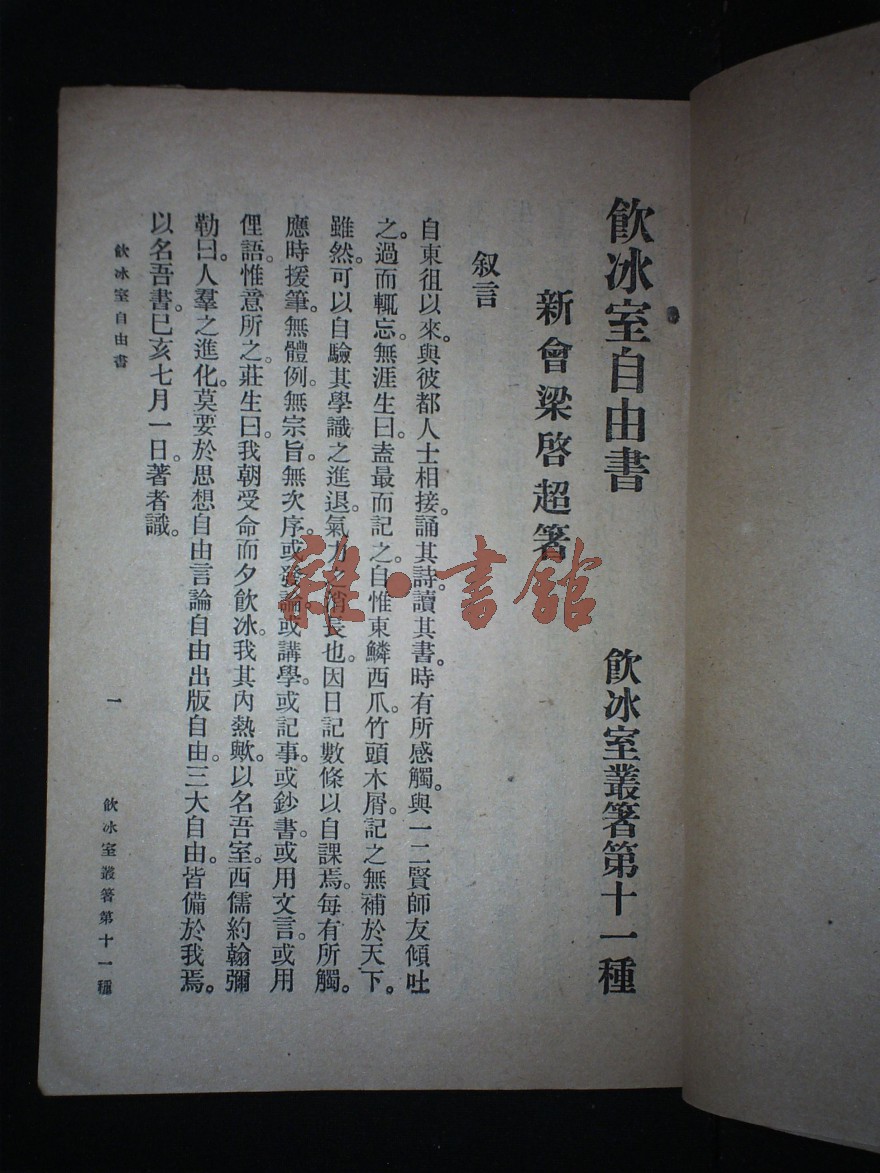 飲冰室自由書
飲冰室叢箸第十一種
新會梁啓超箸
叙言
自東徂以來。與彼都人士相接。誦其詩。讀其書。時有所感觸。與一二賢師友傾吐
之。過而輒忘。無涯生曰。盍最而記之。自惟東鱗西爪。竹頭木屑。記之無補於天下。
雖然。可以自驗其學識之進退。氣力之消長也。因日記數條以自課焉。每有所觸。
應時援筆。無體例。無宗旨。無次序。或發論。或講學。或記事。或鈔書。或用文言。或用
俚語。惟意所之。莊生曰。我朝受命而夕飲冰。我其內熱歟。以名吾室。西儒約翰彌
勒曰。人羣之進化。莫要於思想自由。言論自由。出版自由。三大自由。皆備於我焉。
以名吾書。己亥七月一日。著者識。
飲冰室自由書
一
飲冰室叢箸第十一種
雜·書館